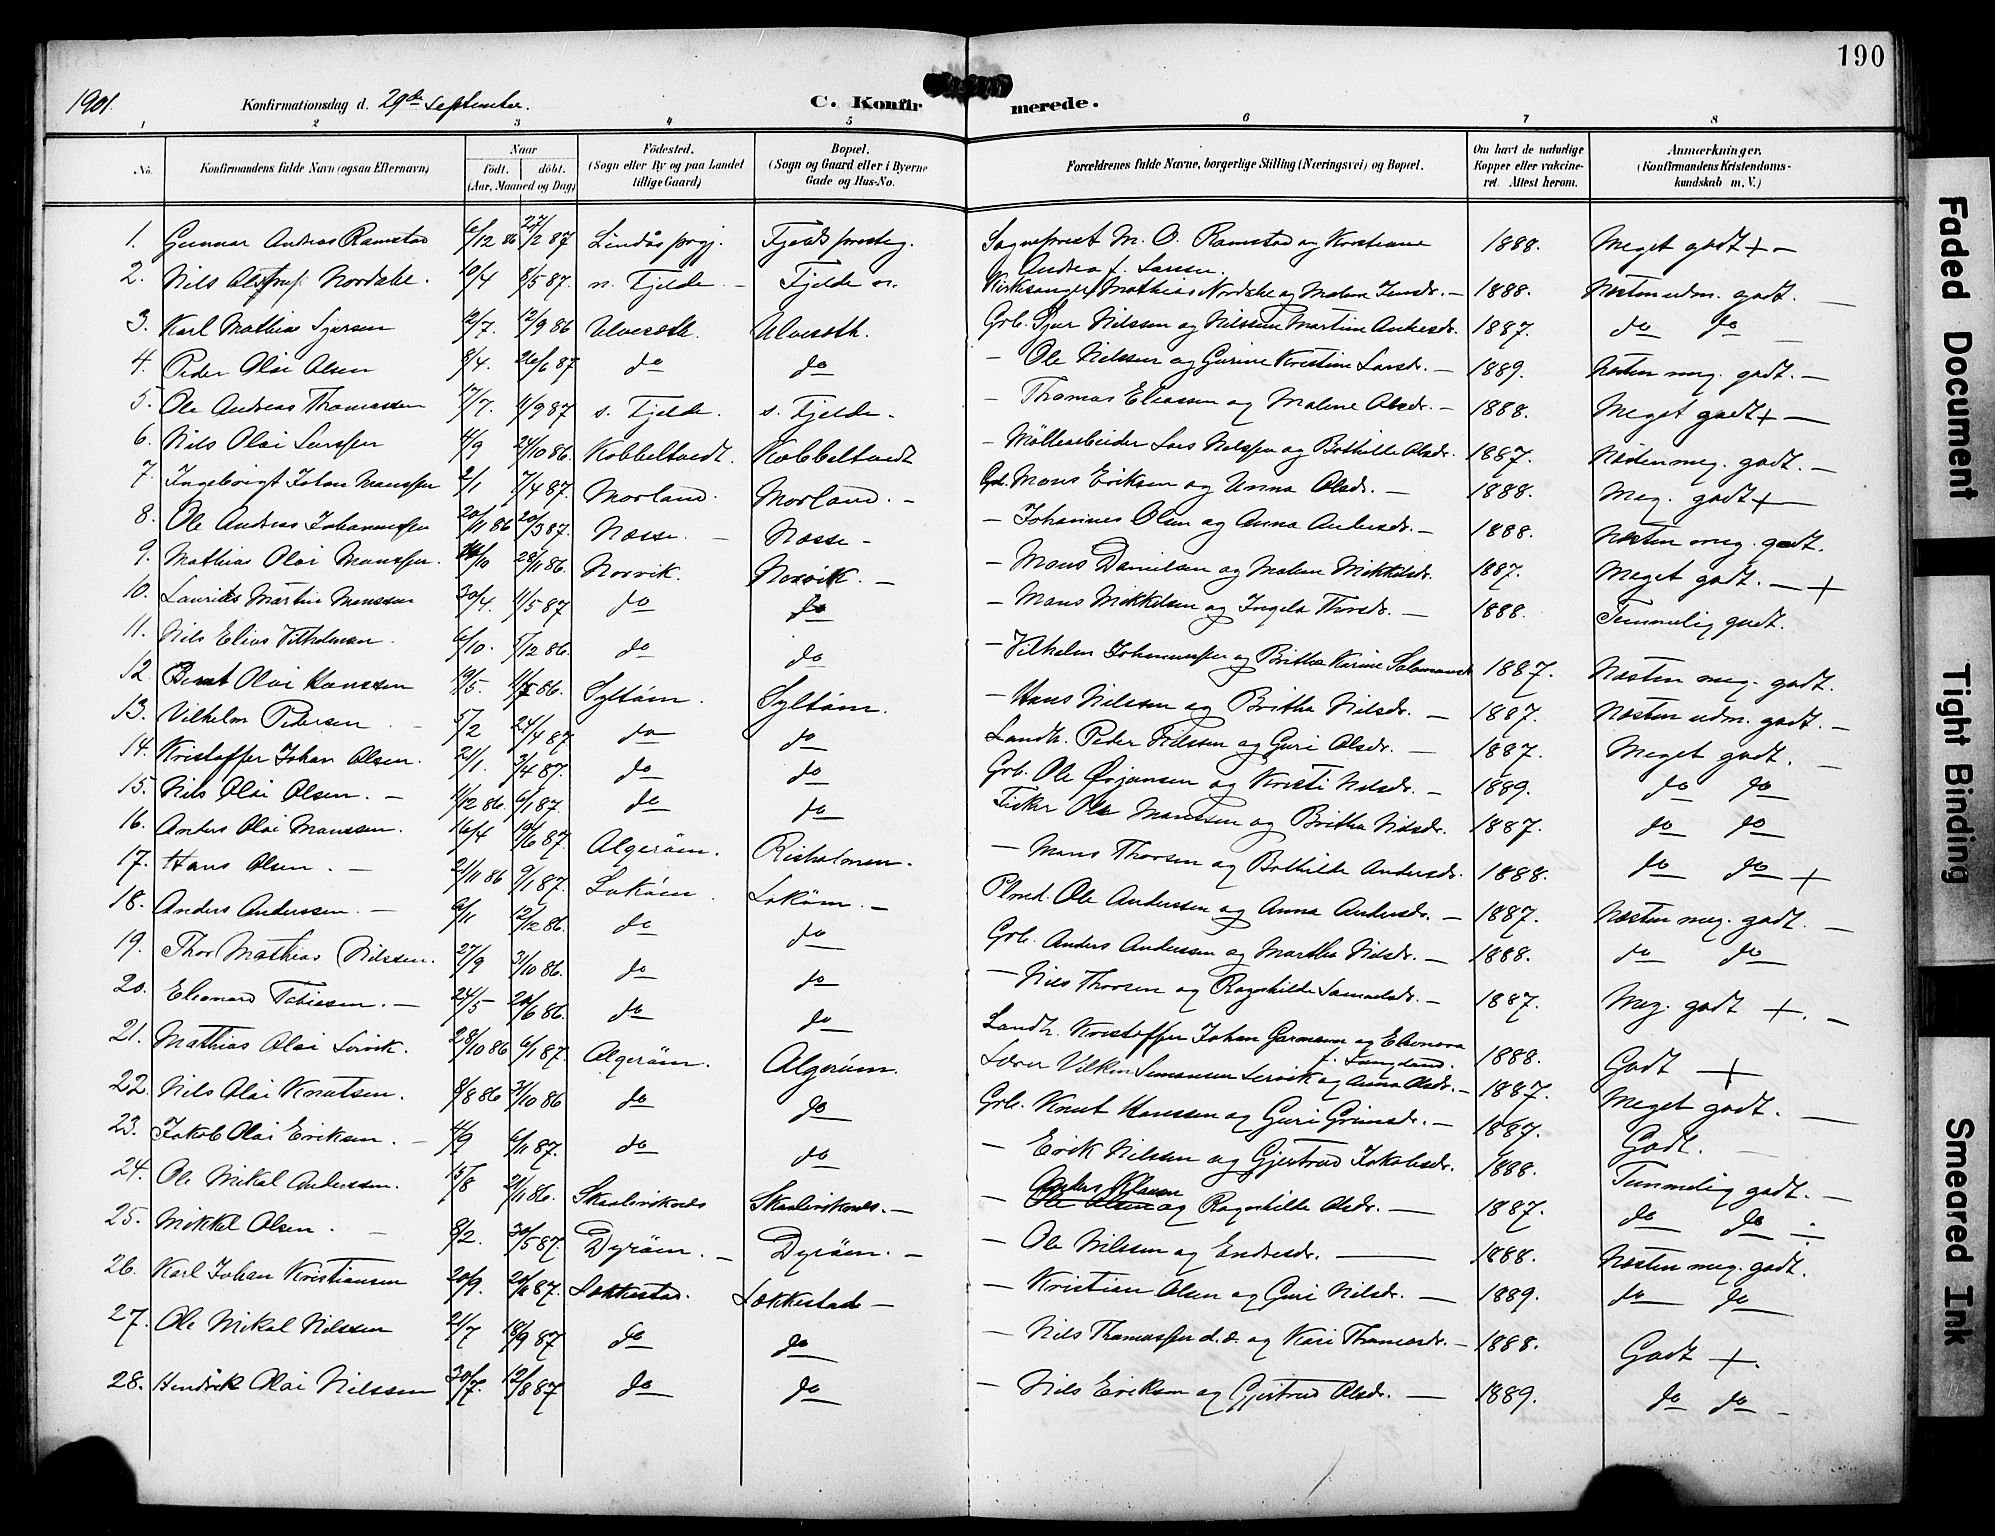 190
1901. Konfirmationsdag d. 29de September. C. Konfirmerede.
1 2 3 4 5 6 7 8
No. Konfirmandens fulde Navn (ogsaa Efternavn) Naar født. døbt. (Aar, Maaned og Dag) Fødested. (Sogn eller By og paa Landet tillige Gaard) Bopæl. (Sogn og Gaard eller i Byerne Gade og Hus-No. Forældrenes fulde Navne, borgerlige Stilling (Næringsvei) og Bopæl. Om havt de naturlige Kopper eller vakcineret. Attest herom. Anmærkninger. (Konfirmandens Kristendomskundskab m. V.)
1. Gunnar Andreas Ramstad 6/12 86 27/2 87 Lindås prgj. Fjelds presteg. Sogneprest M. O. Ramstad og Kristiane Andrea f. Larsen. 1888. Meget godt + —
2. Nils Nordahl. 10/4 8/5 87 n. Fjelde — Fjelde n. Kirkesanger Mathias Nordahl og Malene Jensdr. — 1888. Næsten udm. godt. —
3. Karl Mathias Sjursen 2/7. 12/9 86 Ulvesöth. Ulvesöth. Grb. Sjur Nilssen og Nilssine Martine Andersdr. 1887. do do —
4. Peder Olai Olsen 8/4. 26/6 87 do do — Ole Nilssen og Gurine Kristine Larsdr. — 1889. Næsten meg. godt. —
5. Ole Andreas Thomassen 17/7. 4/9 87 s. Fjelde. s. Fjelde. — Thomas Eliassen og Malene Olsdr. — 1888. Meget godt + —
6. Nils Olai Larssen 4/9 24/10 86. Kobbeltvedt. Kobbeltvedt — Möllearbeider Lars Nilssen og Bothilde Olsdr. 1887. Næsten meg. godt. —
7. Ingebrigt Johan Monssen 2/1 7/4 87. Morland. Morland. — Grb. Mons Eriksen og Anna Olsdr. — 1888. Meg. godt + —
8. Ole Andreas Johannessen 20/11 86 20/3 87. Næsse. — Næsse — — Johannes Olsen og Anna Andersdr. — 1888. Næsten meg. godt.
9. Mathias Olai Monssen. 28/11 86. Norvik. Norvik. — — Mons Danielsen og Malene Mikkelsdr. 1887. Meget godt. — +
10. Laurits Martin Monssen 30/4. 11/5 87 do do — Mons Mikkelsen og Ingela Thorsdr. — 1888. Temmelig godt.
11. Nils Elias Vilhelmsen 6/10. 5/12 86. do do — Vilhelm Johannessen og Britha Karine Salomonsd. 1887. Næsten meg. godt.
12. Bernt Olai Hanssen 19/5. 86. Syltöm. Syltöm. — Hans Nilssen og Britha Nilsdr. — 1887. Næsten udm. godt. —
13. Vilhelm Pedersen — 5/2 24/4 87 do do Landh. Peder Nilssen og Guri Olsdr. — 1887. Meget godt. —
14. Kristoffer Johan Olsen. 21/1. 3/4 87. do do Grb. Ole Örjansen og Kristi Nilsdr. — 1889. do do
15. Nils Olai Olsen. — 4/12 86. 6/1 87. do do Fisker Ole Monssen og Britha Nilsdr. 1887. do do
16. Anders Olai Monssen. 16/4 19/6 87. Algeröm. Risholmen. — Mons Thorsen og Bothilde Andersdr. 1888. do do +
17. Hans Olsen. — 21/11 86 9/1 87. Loköm. Loköm. — Plmd. Ole Anderssen og Anna Andersdr. — 1887. Næsten meg. godt. —
18. Anders Anderssen. — 12/12 86. do do Grb. Anders Anderssen og Martha Nilsdr. — 1888. do do
19. Thor Mathias Nilssen. 27/9 31/10 86. do do — Nils Thorsen og Ragnhilde Samuelsdr. — 1887. Meg. godt + . —
20. Eleonard Tobiessen. — 24/5 20/6 86. do do Landh. Kristoffer Johan Garmann og Eleonora f. Langland. 1888. Godt +
21. Mathias Olai Lervik. 28/10 86 6/1 87. Algeröm. Algeröm. Lærer Vilken Simonsen Lervik og Anna Olsdr. — 1887. Meget godt. —
22. Nils Olai Knutsen. 8/8 86 31/10 86 do do Grb. Knut Hanssen og Guri Grimsdr. — 1887. Godt. —
23. Jakob Olai Eriksen. — 4/9 6/11 87. do do — Erik Nilssen og Gjertrud Jakobsdr. 1888. Temmelig godt. —
24. Ole Mikal Anderssen. 15/8 21/11 86. Skaalviknes Skaalviknes. — — Anders Klausen Ole Olsen og Ragnhilde Olsdr. — 1887. do do —
25. Mikkel Olsen. — 8/2. 30/5 87. Dyröm. — Dyröm. — — Ole Nilssen og Endresdr. — 1888. Næsten meg. godt.
26. Karl Johan Kristiansen 20/9. 87. Lokkestad. Lokkestad — — Kristian Olsen og Guri Nilsdr. — 1889. do do
27. Ole Mikal Nilssen 21/7 18/9 87 do do — Nils Thomassen d. æ. og Kari Thomasdr. — 1888. Godt +.
28. Hendrik Olai Nilssen 30/7. 12/8 87 do do — Nils Eriksen og Gjertrud Olsdr. — 1889. do do —
Faded Document
Tight Binding
Smeared Ink